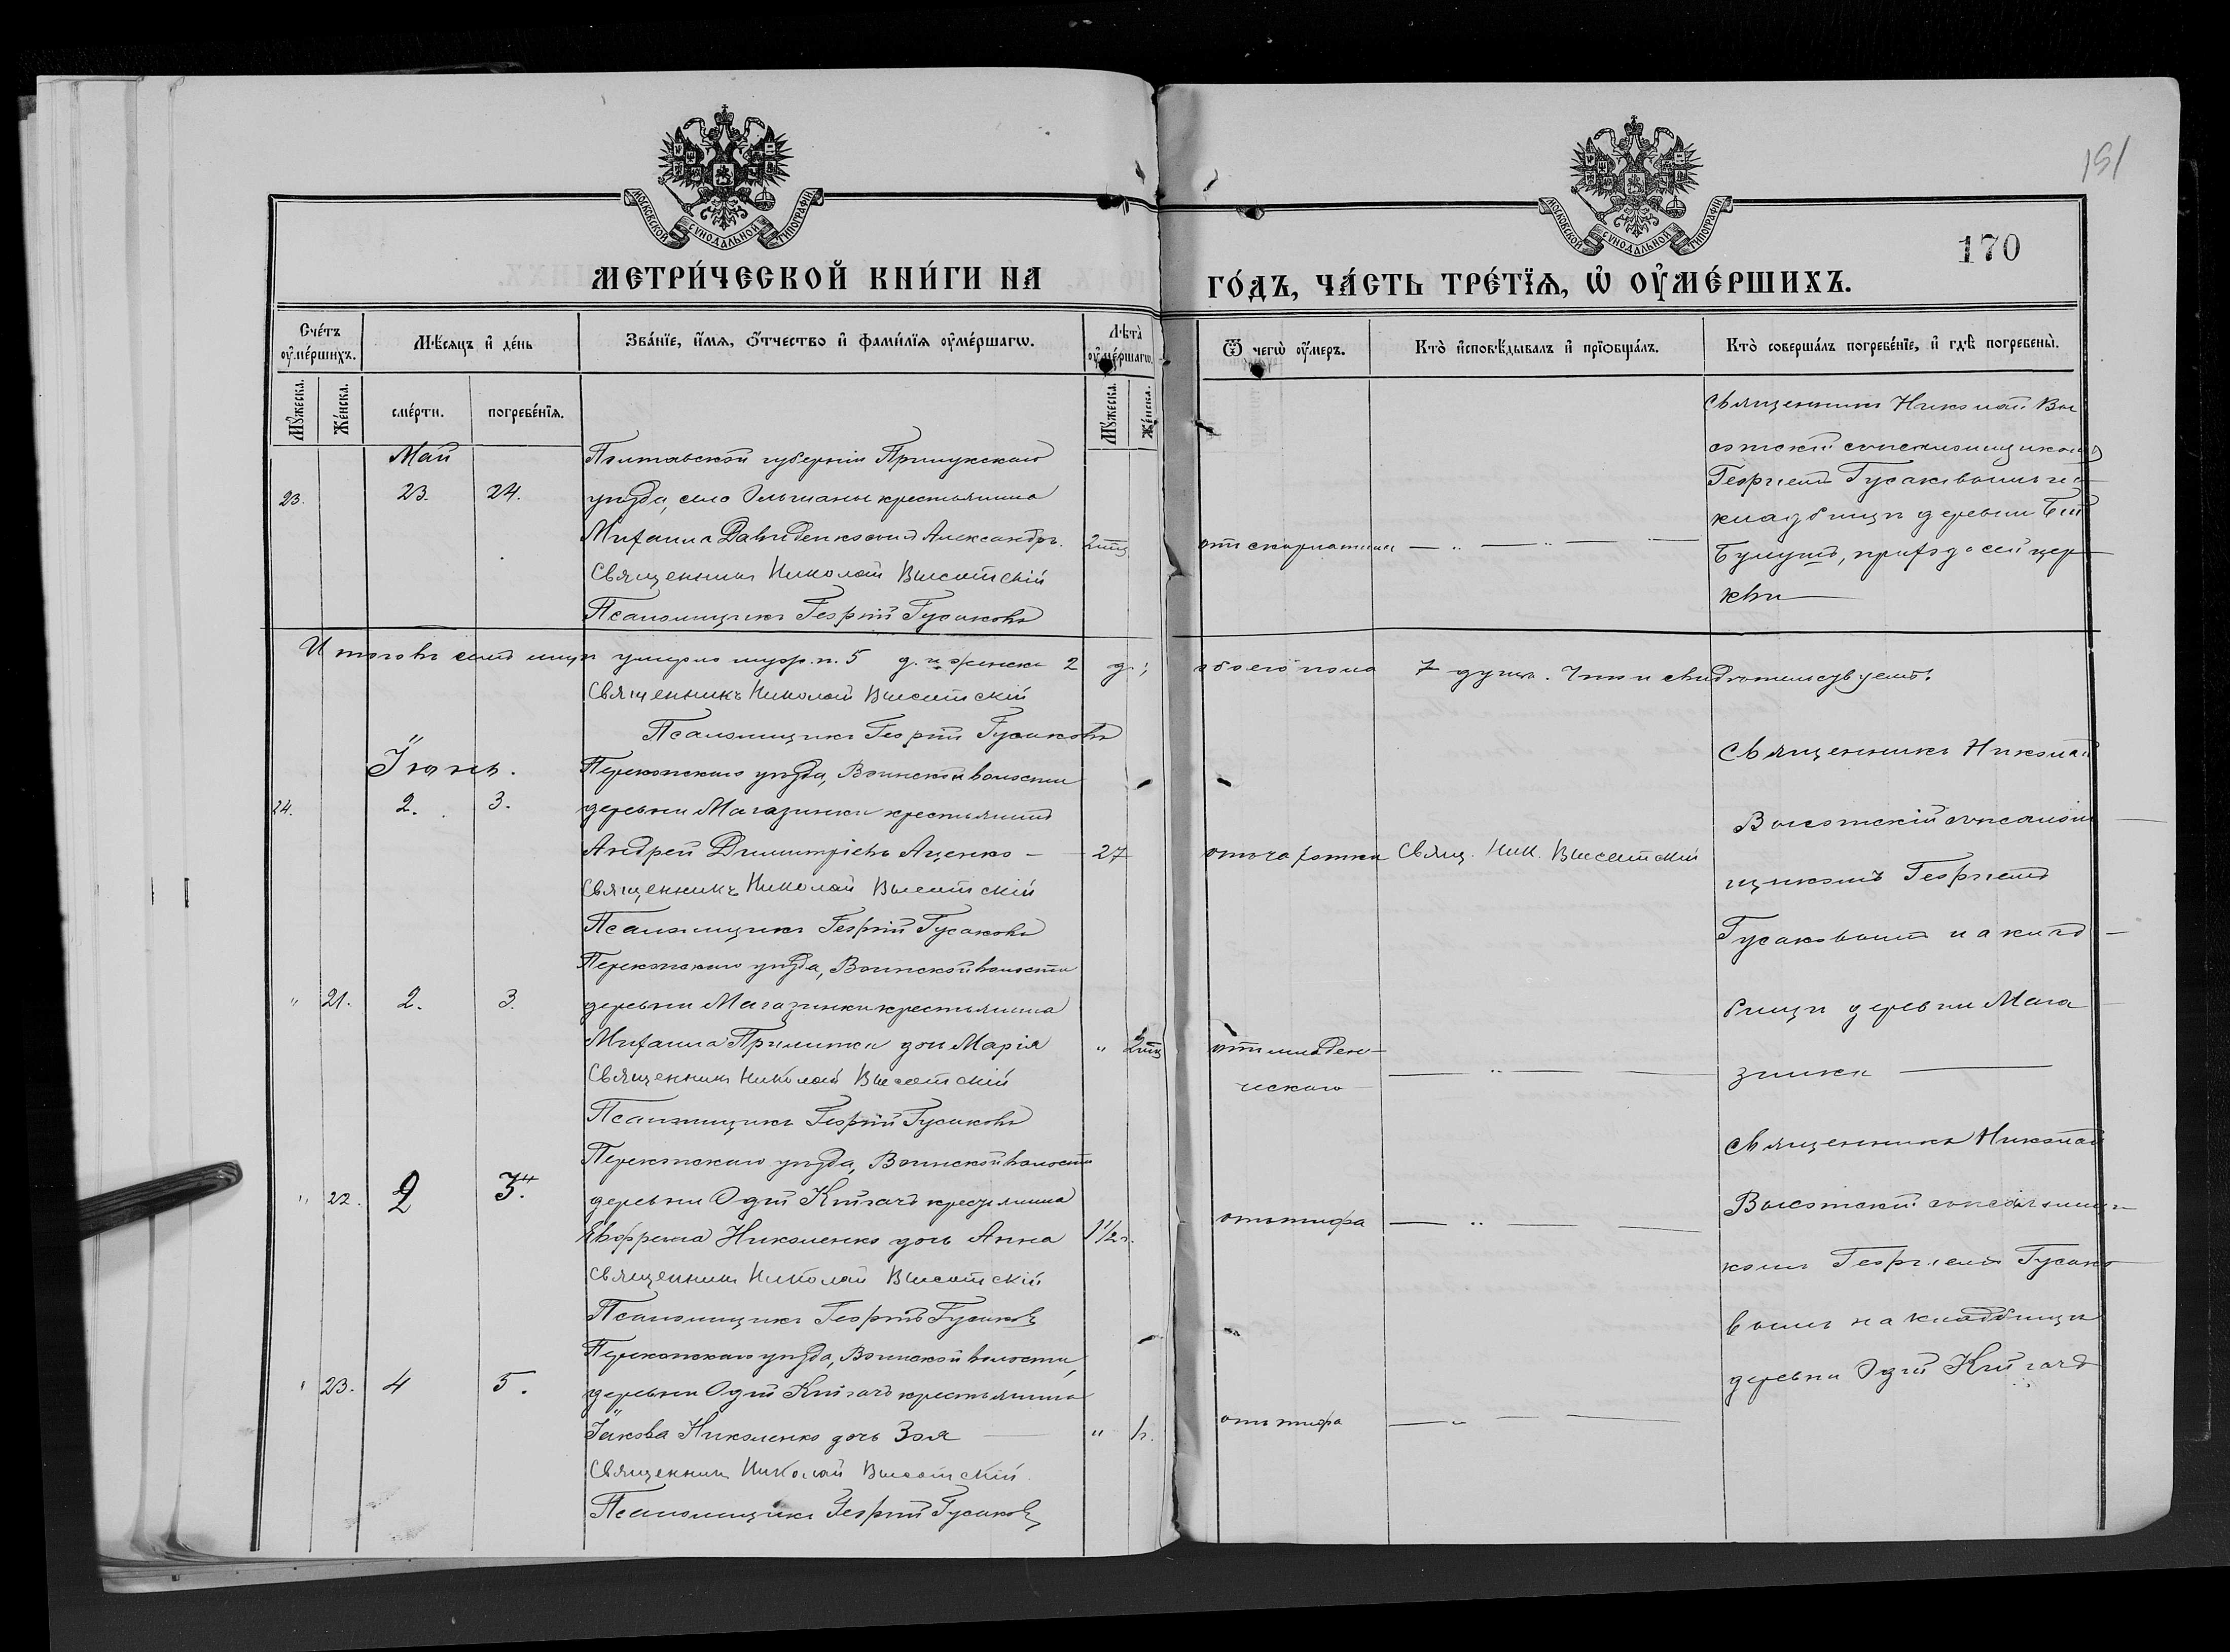 МОСКОВСКОЙ СѴНОДАЛЬНОЙ ТИПОГРАФІИ
МЕТРИ́ЧЕСКОЙ КНИ́ГИ НА
Сче́тъ ᲂу҆ме́ршихъ.
Мѣ́сяцъ и҆ де́нь
Зва́нїе, и҆́мя, ѻ҆́тчество и҆ фами́лїя ᲂу҆ме́ршагѡ.
Лѣ́та ᲂу҆ме́ршагѡ.
Мꙋ́жеска.
Же́нска.
сме́рти.
погребе́нїя.
Мꙋ́жеска.
Же́нска.
Май
Полтавской губерніи Прилукскаго
23.
23.
24.
уѣзда, села Ольшаны крестьянина
Михаила Давиденко сынъ Александръ.
2 мѣс
Священникъ Николай Высотскій
Псаломщикъ Георгій Гусаковъ
Итого въ семъ мцѣ умерло муж. п. 5 д. и женска 2 д.;
Священникъ Николай Высотскій
Псаломщикъ Георгій Гусаковъ
Іюнь.
Перекопскаго уѣзда, Воинской волости
24.
2.
3.
деревни Магазинки крестьянинъ
Андрей Димитріевъ Аценко —
27
Священникъ Николай Высотскій
Псаломщикъ Георгій Гусаковъ
Перекопскаго уѣзда, Воинской волости
" 21.
2.
3.
деревни Магазинки крестьянина
Михаила дочь Марія
" 2 мц
Священникъ Николай Высотскій
Псаломщикъ Георгій Гусаковъ
Перекопскаго уѣзда, Воинской волости
" 22.
2
3.
4
деревни Одій Кійгачъ крестьянина
Евфрема Николенко дочь Анна
1 1/2 г.
Священникъ Николай Высотскій
Псаломщикъ Георгій Гусаковъ
Перекопскаго уѣзда, Воинской волости,
" 23.
4
5.
деревни Одій Кійгачъ крестьянина
Іакова Николенко дочь Зоя
"
Священникъ Николай Высотскій
Псаломщикъ Георгій Гусаковъ
151
МОСКОВСКОЙ СѴНОДАЛЬНОЙ ТИПОГРАФІИ
170
ГО́ДЪ, ЧА́СТЬ ТРЕ́ТЇѦ, Ѡ҆ ОУ҆МЕ́РШИХЪ.
Ѿ чегѡ̀ ᲂу҆́меръ.
Кто̀ и҆сповѣ́дывалъ и҆ прїѡбща́лъ.
Кто̀ соверша́лъ погребе́нїе, и҆ гдѣ̀ погребены̀.
Священникъ Николай Вы
сотскій съ псаломщикомъ
Георгіемъ Гусаковымъ на
кладбищѣ деревни Бій
отъ скарлатины — " — " —
Булушъ, прихода сей цер
кви —
обоего пола 7 душъ. Что и свидѣтельствуемъ.
Священникъ Николай
Высотскій съ псаломщ
отъ чахотки
Свящ. Ник. Высотскій
щикомъ Георгіемъ
Гусаковымъ на клад
бищѣ деревни Мага
отъ младен-
ческаго
— " — —
зинки —
Священникъ Николай
Высотскій съ псаломщи
отъ тифа
— " — —
комъ Георгіемъ Гусако
вымъ на кладбищѣ
деревни Одій Кійгачъ
отъ тифа
— " — —